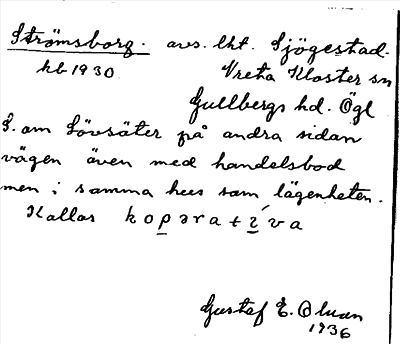 Strömsborg. avs. lht. Sjögestad.
kb 1930. Vreta Kloster sn
Gullbergs hd. Ögl
S. om Lövsäter på andra sidan
vägen även med handelsbod
men i samma hus som lägenheten.
Kallas kopərati´va
Gustaf E. Olsson
1936